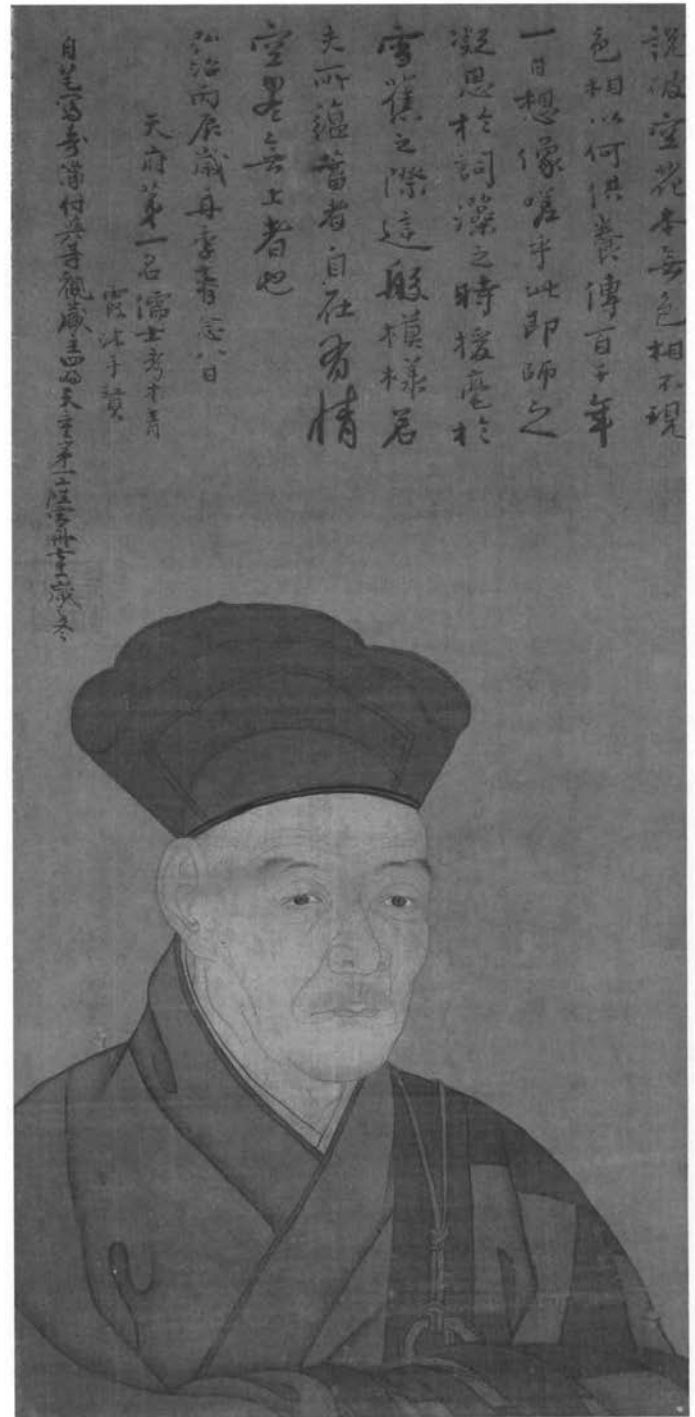 説破空花本無色相不現
色相以何供養傳百千年
一日想像嗟乎此即師之
凝思於詞藻之時援毫於
雪蕉之際這般模樣若
夫所蘊蓄者自在有情
空界無上者也
弘治丙辰歳舟季春念八日
天府第一名儒士秀才青
霞沈手贊
自筆寫壽像付與等觀藏主四明天童第一座雪舟七十一歳冬